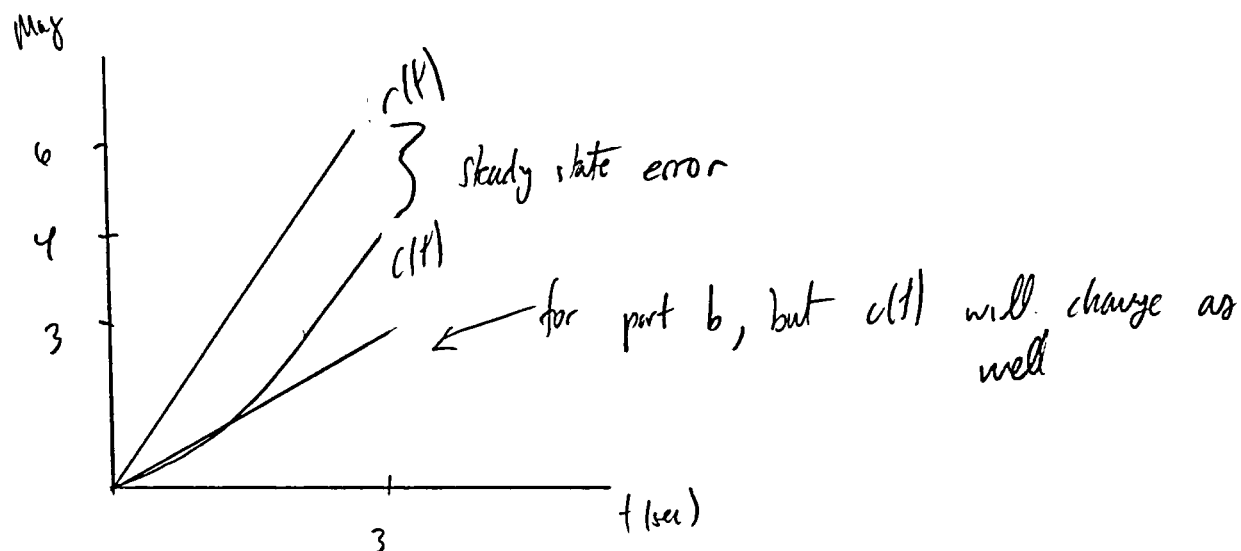 Mag
r(t)
6
steady state error
4
c(t)
for part b, but c(t) will change as
well
3
t (sec)
3